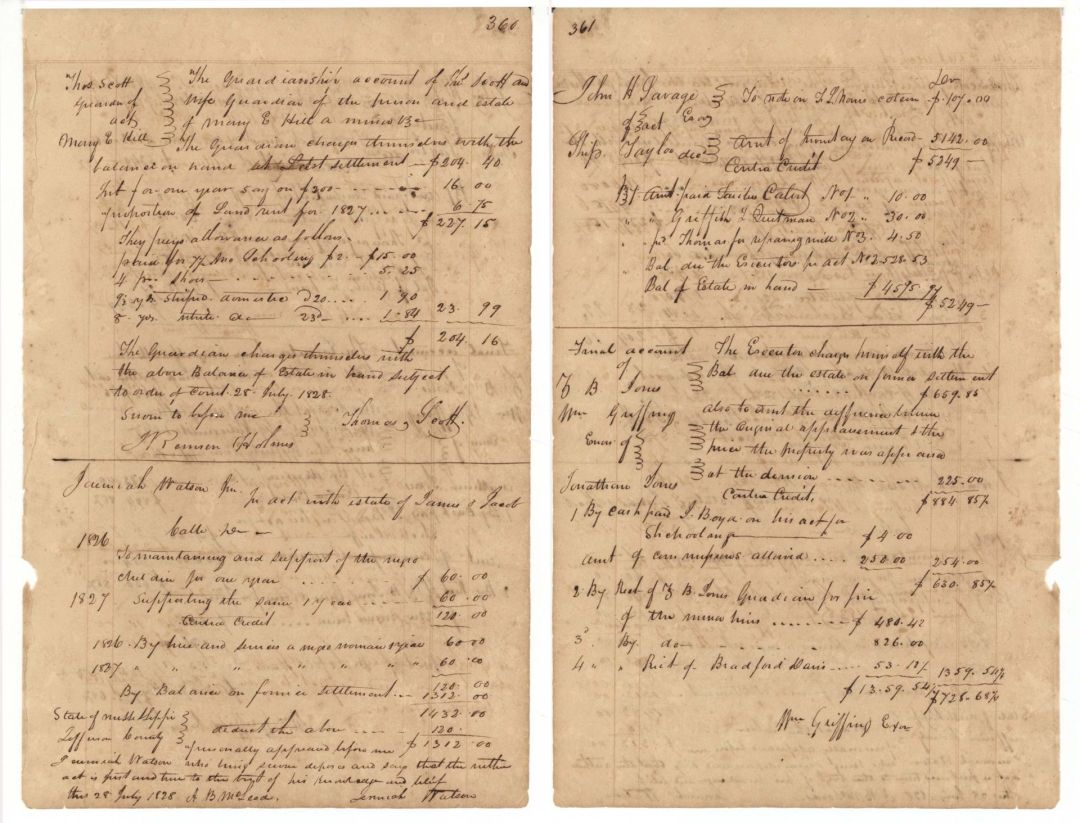 360
Thos. Scott
Guardian of
Mary E. Hill
The Guardianship account of Thos Scott and
Wife Guardian of the person and estate
of Mary E Hill a minor
The Guardian charges themselves with the
balance on hand at last settlement — $204. 40
Int for one year say on $200 - - - - 16. 00
proportion of Land rent for 1827 ... 6. 75
$ 227. 15
They prays allowance as follows.
paid for 7½ Mo Schooling $2 - $15. 00
4 pr. Shoes — 5. 25
9½ yds. striped domestic @20 .... 1 90
8 - yds. white do — 23 .... 1 - 84 23. 99
$ 204. 16
The Guardian charges themselves with
the above Balance of Estate in hand subject
to order of Court. 28 July. 1828.
Sworn to before me
Thomas Scott.
Remsen Holmes
Jeremiah Watson In act with estate of James & Jacob
1826
To maintaining and support of the negro
children for one year ...... $ 60. 00
1827 Supporting the same 1 year .... 60. 00
Contra Credit 120. 00
1826. By hire and services a negro woman 1 year 60 00
1827 " " " " " " " 60. 00
120. 00
By Balance on former settlement ... 1312. 00
1432. 00
State of Mississippi
Jefferson County
deduct the above .... 120.
$ 1312. 00
personally appeared before me
Jeremiah Watson who being sworn deposes and says that the within
act is just and true to the best of his knowledge and belief
this 28 July 1828. A. B. McLead. Jeremiah Watson
361
John H Savage
Exor
To note on $ 107. 00
Amt of on Record 5142. 00
Contra Credit $ 5249 —
By Amt paid No 1 " 10. 00
" " Griffith & Quitman No 2 " 30. 00
" pd. Thomas for repairing mill No 3. 4. 50
Bal due the Executors pr act No 528. 53
Bal of Estate in hand — $ 4595 97
$ 5249 —
Final account
of
B Jones
Wm Griffing
Exors of
Jonathan Jones
The Executor charges himself with the
Bal due the estate on former settlement
$ 659. 85
also to amt the difference between
the original appraisement & the
price the property was appraised
at the division ........ 225. 00
Contra Credit. $ 884. 85½
1 By cash paid J. Boyd on his act for
Schooling $ 4 00
amt of commissions allowed .... 250 00 254. 00
$ 630. 85½
2 By Rect of B. Jones Guardian for
of the minor heirs ....... $ 480. 42
3 By do — 826. 00
4 " " Rect of Bradford Davis .... 53. 12½ 1359. 54½
$ 13.59. 54½ $ 728. 68¾
Wm Griffing Exor